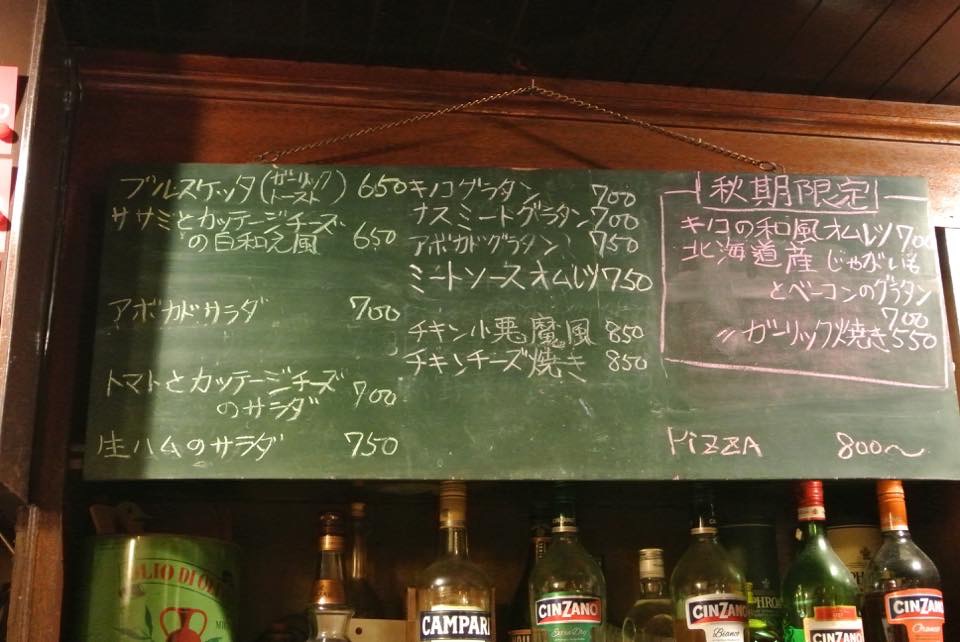 ブルスケッタ(ガーリックトースト) 650
ササミとカッテージチーズ
の自和え風 650
アボカドサラダ 700
トマトとカッテージチーズ
のサラダ 700
生ハムのサラダ 750
キノコグラタン 700
ナスミートグラタン 700
アボカドグラタン 750
ミートソースオムレツ 750
チキン小悪魔風 850
チキンチーズ焼き 850
秋期限定
キノコの和風オムレツ 700
北海道産じゃがいも
とベーコンのグラタン
700
〃ガーリック焼き 550
PiZZA 800〜
OLIO DI
CAMPARI
CINZANO
Extra Dry
CINZANO
Bianco
CINZANO
CINZANO